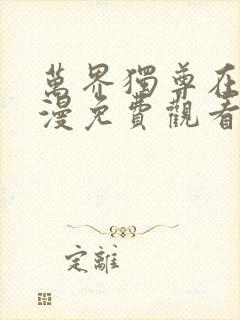 萬界獨尊在
漫免費觀看
定離